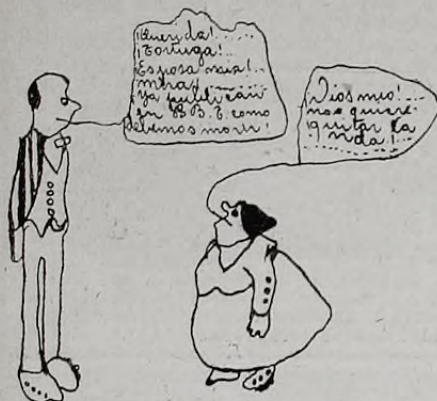 ¡Querida!
¡Tortuga!..
¡Esposa mia!...
mira!
ya publican
en B.B.E. como
debemos morir!
¡Dios mio!
nos quiere
quitar la
vida!